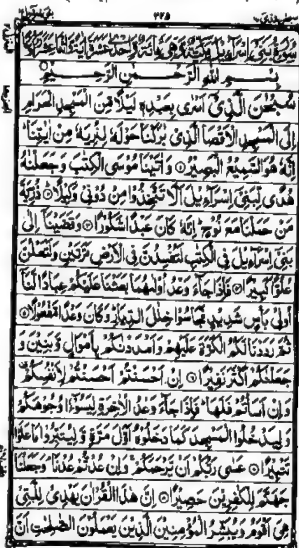 ۳۲۵
سُورَةُ بَنِیْٓ اِسْرَآءِیْلَ مَكِّیَّةٌ وَّهِیَ مِائَةٌ وَّاِحْدٰی عَشْرَةَ اٰیَةً وَّاثْنَا عَشَرَ رُكُوْعًا
بِسْمِ اللّٰهِ الرَّحْمٰنِ الرَّحِیْمِ
سُبْحٰنَ الَّذِیْٓ اَسْرٰی بِعَبْدِهٖ لَیْلًا مِّنَ الْمَسْجِدِ الْحَرَامِ
اِلَی الْمَسْجِدِ الْاَقْصَا الَّذِیْ بٰرَكْنَا حَوْلَهٗ لِنُرِیَهٗ مِنْ اٰیٰتِنَا ؕ
اِنَّهٗ هُوَ السَّمِیْعُ الْبَصِیْرُ ۝ وَاٰتَیْنَا مُوْسَی الْكِتٰبَ وَجَعَلْنٰهُ
هُدًی لِّبَنِیْٓ اِسْرَآءِیْلَ اَلَّا تَتَّخِذُوْا مِنْ دُوْنِیْ وَكِیْلًا ۝ ذُرِّیَّةَ
مَنْ حَمَلْنَا مَعَ نُوْحٍ ؕ اِنَّهٗ كَانَ عَبْدًا شَكُوْرًا ۝ وَقَضَیْنَآ اِلٰی
بَنِیْٓ اِسْرَآءِیْلَ فِی الْكِتٰبِ لَتُفْسِدُنَّ فِی الْاَرْضِ مَرَّتَیْنِ وَلَتَعْلُنَّ
عُلُوًّا كَبِیْرًا ۝ فَاِذَا جَآءَ وَعْدُ اُوْلٰىهُمَا بَعَثْنَا عَلَیْكُمْ عِبَادًا لَّنَآ
اُولِیْ بَاْسٍ شَدِیْدٍ فَجَاسُوْا خِلٰلَ الدِّیَارِ ؕ وَكَانَ وَعْدًا مَّفْعُوْلًا ۝
ثُمَّ رَدَدْنَا لَكُمُ الْكَرَّةَ عَلَیْهِمْ وَاَمْدَدْنٰكُمْ بِاَمْوَالٍ وَّبَنِیْنَ وَ
جَعَلْنٰكُمْ اَكْثَرَ نَفِیْرًا ۝ اِنْ اَحْسَنْتُمْ اَحْسَنْتُمْ لِاَنْفُسِكُمْ
وَاِنْ اَسَاْتُمْ فَلَهَا ؕ فَاِذَا جَآءَ وَعْدُ الْاٰخِرَةِ لِیَسُوْٓءٗا وُجُوْهَكُمْ
وَلِیَدْخُلُوا الْمَسْجِدَ كَمَا دَخَلُوْهُ اَوَّلَ مَرَّةٍ وَّلِیُتَبِّرُوْا مَا عَلَوْا
تَتْبِیْرًا ۝ عَسٰی رَبُّكُمْ اَنْ یَّرْحَمَكُمْ ۚ وَاِنْ عُدْتُّمْ عُدْنَا ۘ وَجَعَلْنَا
جَهَنَّمَ لِلْكٰفِرِیْنَ حَصِیْرًا ۝ اِنَّ هٰذَا الْقُرْاٰنَ یَهْدِیْ لِلَّتِیْ
هِیَ اَقْوَمُ وَیُبَشِّرُ الْمُؤْمِنِیْنَ الَّذِیْنَ یَعْمَلُوْنَ الصّٰلِحٰتِ اَنَّ